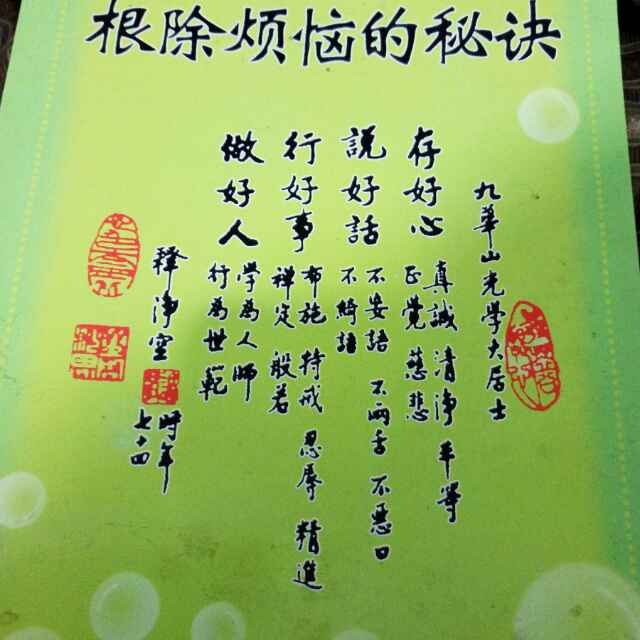 根除烦恼的秘诀
九華山光学大居士
存好心
真誠 清淨 平等
正覺 慈悲
說好話
不妄語 不兩舌 不惡口
不綺語
行好事
布施 持戒 忍辱 精進
禅定 般若
做好人
學為人師
行為世範
释淨空
時年
七十四